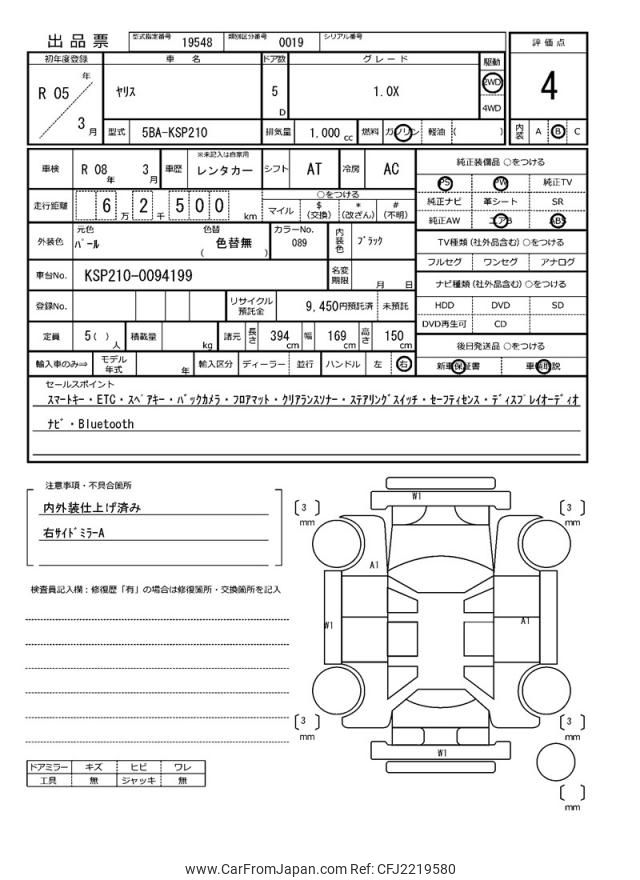 出品票
型式指定番号 19548 類別区分番号 0019 シリアル番号
初年度登録 車名 ドア数 グレード 駆動 評価点
R 05 年 3 月 ヤリス 5 D 1.0X 2WD 4WD 4
型式 5BA-KSP210 排気量 1.000 cc 燃料 ガソリン 軽油 ( ) 内装 A B C
車検 R 08 年 3 月 車歴 ※未記入は自家用 レンタカー シフト AT 冷房 AC
純正装備品 ○をつける
PS PW 純正TV
純正ナビ 革シート SR
純正AW エアB ABS
走行距離 6 万 2 千 5 0 0 km
○をつける
マイル $ (交換) * (改ざん) # (不明)
外装色 元色 パール 色替 色替無 ( ) カラーNo. 089 内装色 ブラック
TV種類 (社外品含む) ○をつける
フルセグ ワンセグ アナログ
車台No. KSP210-0094199 名変期限 月 日
ナビ種類 (社外品含む) ○をつける
HDD DVD SD
DVD再生可 CD
登録No. リサイクル預託金 9,450円預託済 未預託
定員 5 ( ) 人 積載量 kg 諸元 長さ 394 cm 幅 169 cm 高さ 150 cm
後日発送品 ○をつける
新車保証書 車輌取説
輸入車のみ⇒ モデル年式 年 輸入区分 ディーラー 並行 ハンドル 左 右
セールスポイント
スマートキー・ETC・スペアキー・バックカメラ・フロアマット・クリアランスソナー・ステアリングスイッチ・セーフティセンス・ディスプレイオーディオ
ナビ・Bluetooth
注意事項・不具合箇所
内外装仕上げ済み
右サイドミラーA
検査員記入欄：修復歴「有」の場合は修復箇所・交換箇所を記入
W1
[ 3 ] mm
[ 3 ] mm
A1
W1
A1
[ 3 ] mm
[ 3 ] mm
W1
[ ] mm
ドアミラー キズ ヒビ ワレ
工具 無 ジャッキ 無
www.CarFromJapan.com Ref: CFJ2219580